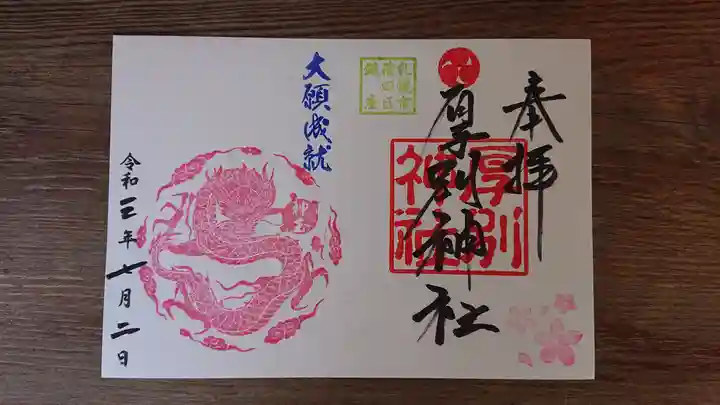 奉拝
厚別神社
厚別
神社
札幌市
清田区
鎮座
大願成就
令和三年七月二日